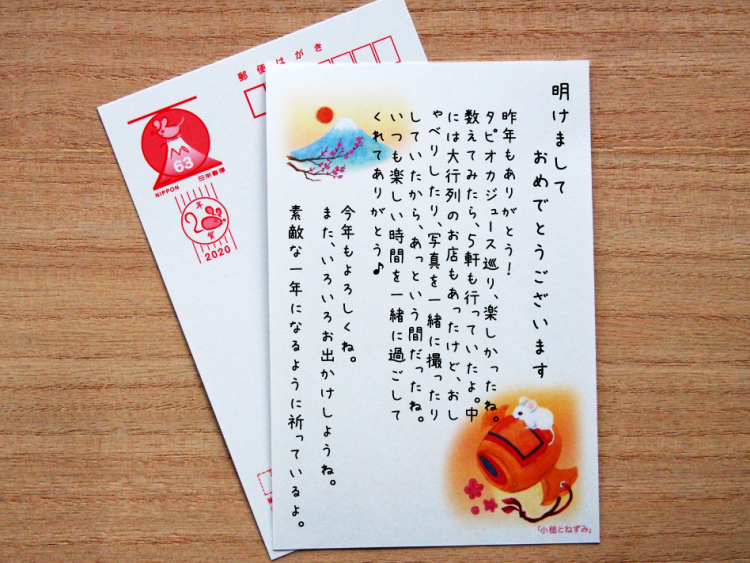 明けまして
おめでとうございます
昨年もありがとう！
タピオカジュース巡り、楽しかったね。
数えてみたら、5軒も行っていたよ。中
には大行列のお店もあったけど、おし
ゃべりしたり、写真を一緒に撮ったり
していたから、あっという間だったね。
いつも楽しい時間を一緒に過ごして
くれてありがとう♪
今年もよろしくね。
また、いろいろお出かけしようね。
素敵な一年になるように祈っているよ。
「小槌とねずみ」
郵便はがき
63
NIPPON
日本郵便
年賀
2020